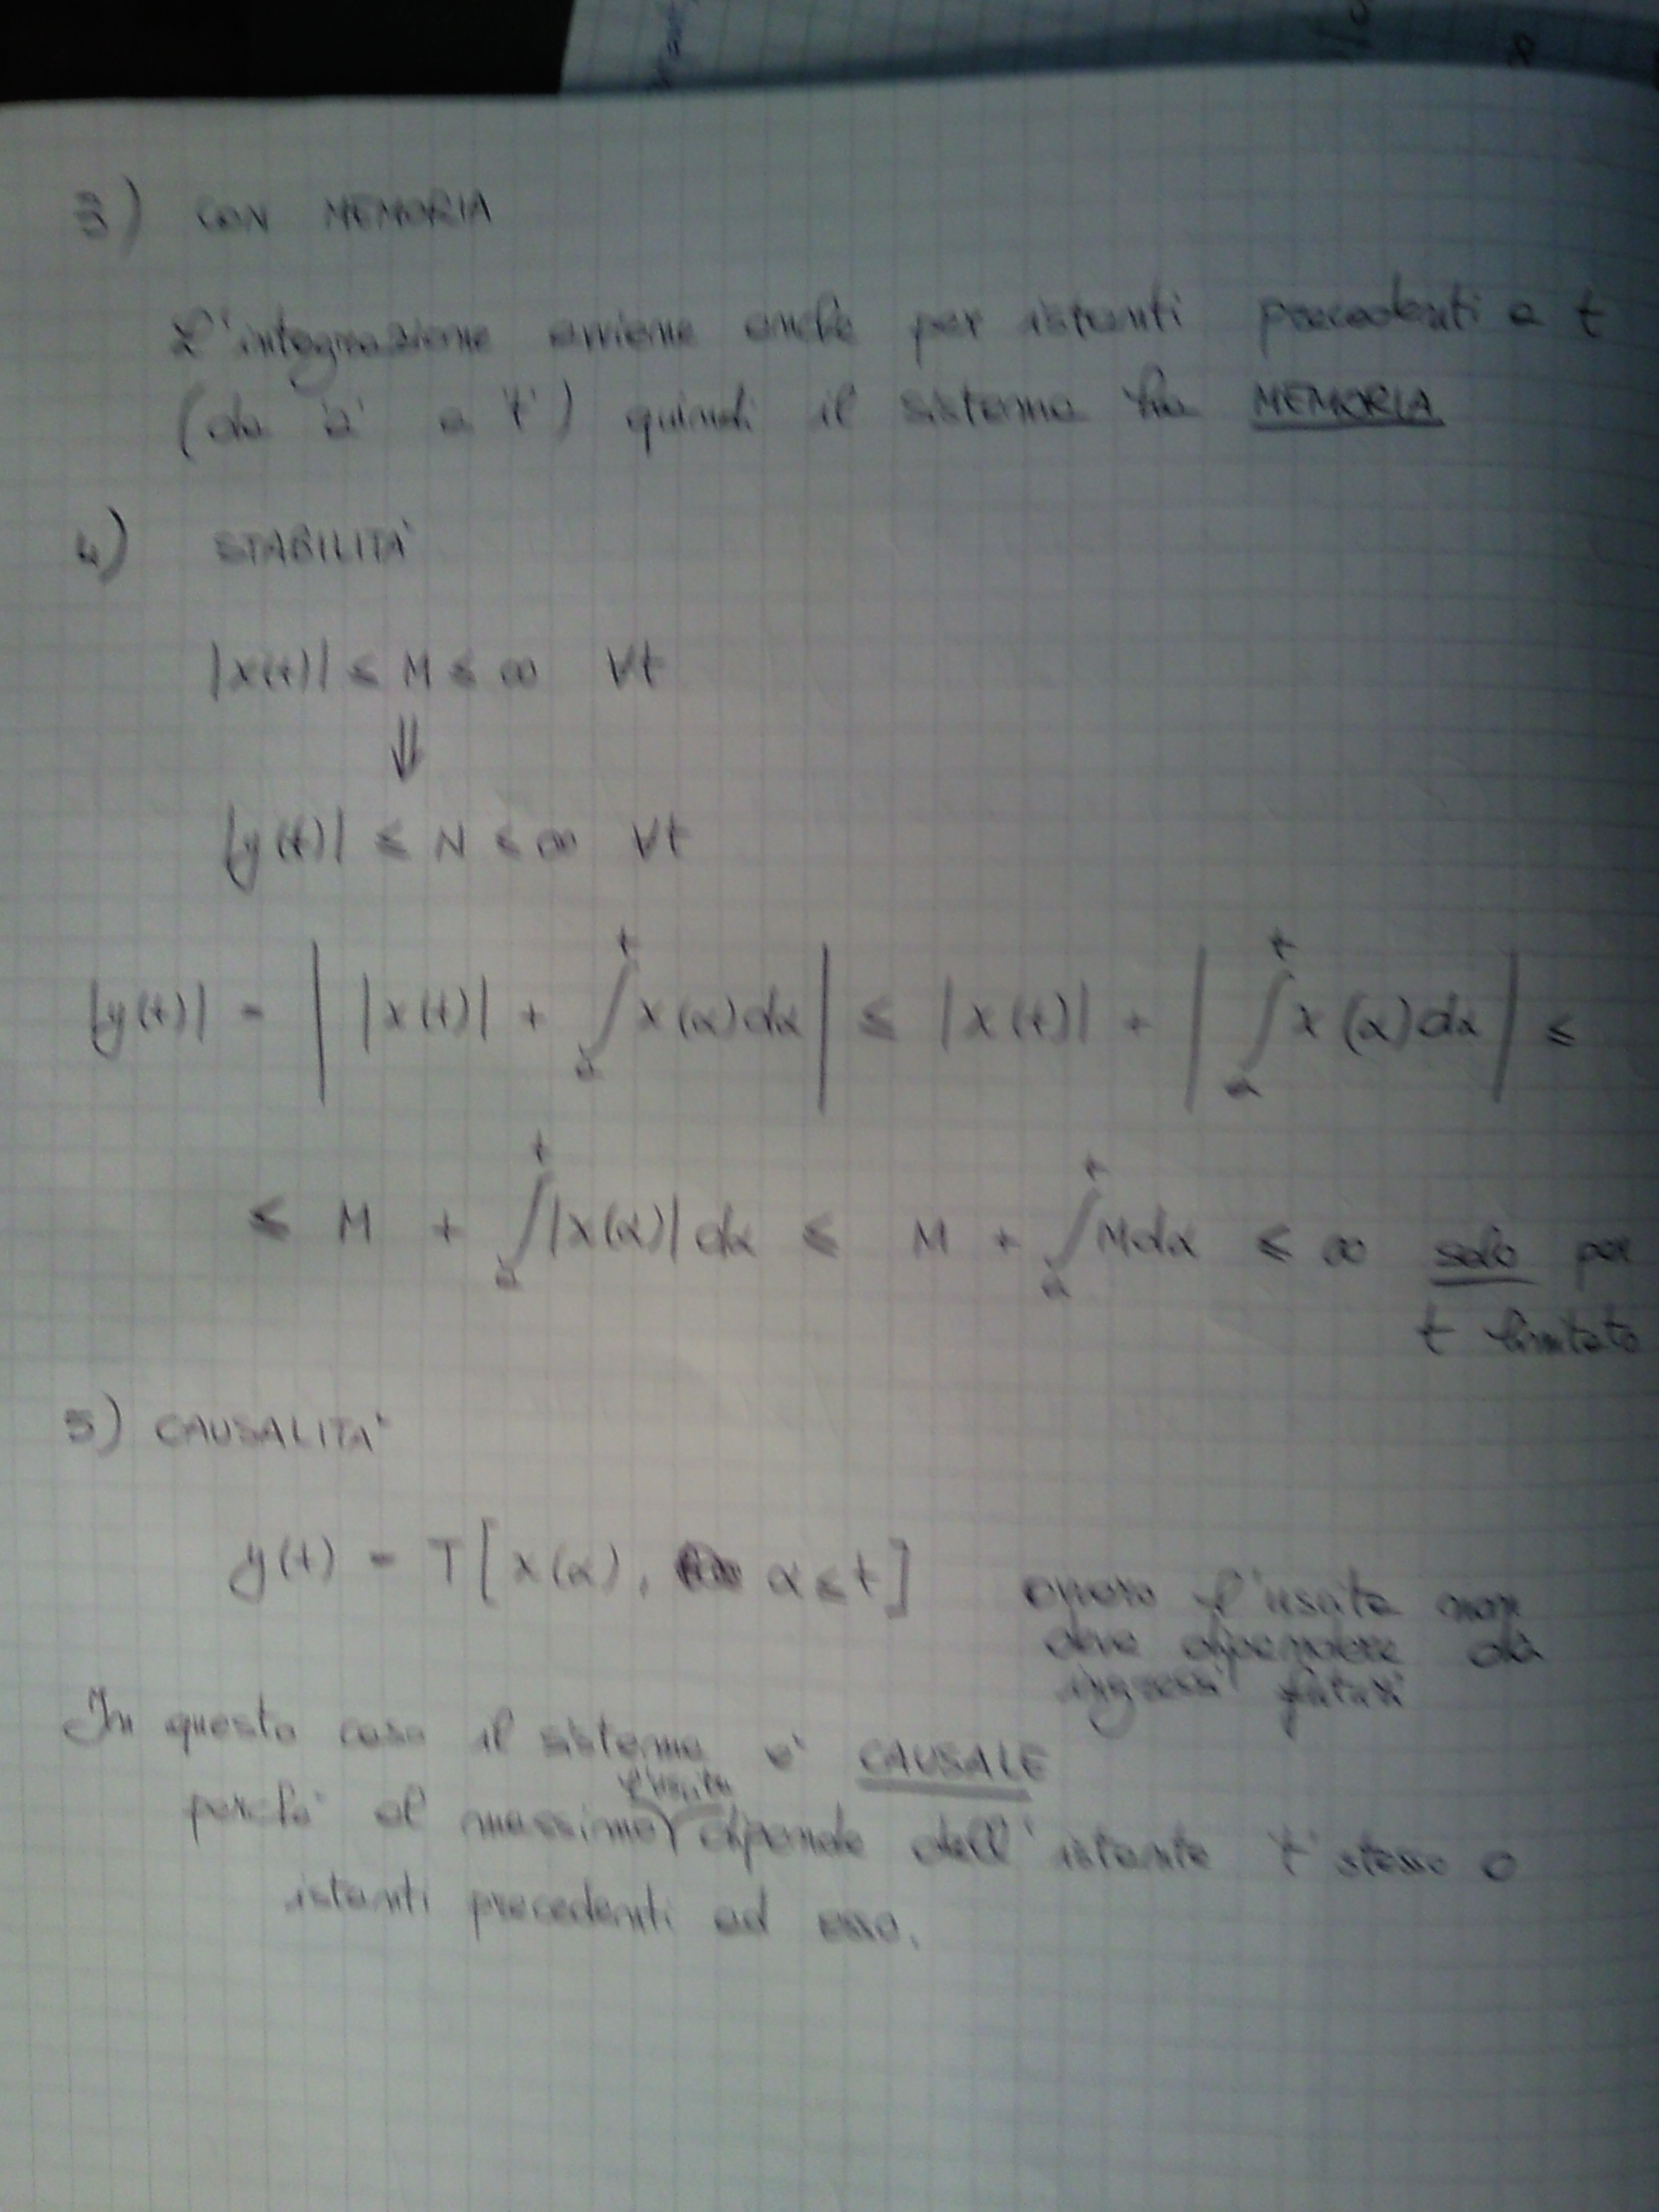 3) CON MEMORIA
L'integrazione avviene anche per istanti precedenti a t
(da 'a' a 't') quindi il sistema ha MEMORIA
4) STABILITA'
|x(t)| ≤ M ≤ ∞ ∀t
⇓
|y(t)| ≤ N ≤ ∞ ∀t
|y(t)| = | |x(t)| + ∫ₐᵗ x(α)dα | ≤ |x(t)| + | ∫ₐᵗ x(α)dα | ≤
≤ M + ∫ₐᵗ |x(α)| dα ≤ M + ∫ₐᵗ M dα ≤ ∞ solo per
t limitato
5) CAUSALITA'
y(t) = T[x(α), α ≤ t] ovvero l'uscita non
deve dipendere da
ingressi futuri
In questo caso il sistema e' CAUSALE
perche' al massimo l'uscita dipende dall'istante 't' stesso o
istanti precedenti ad esso.